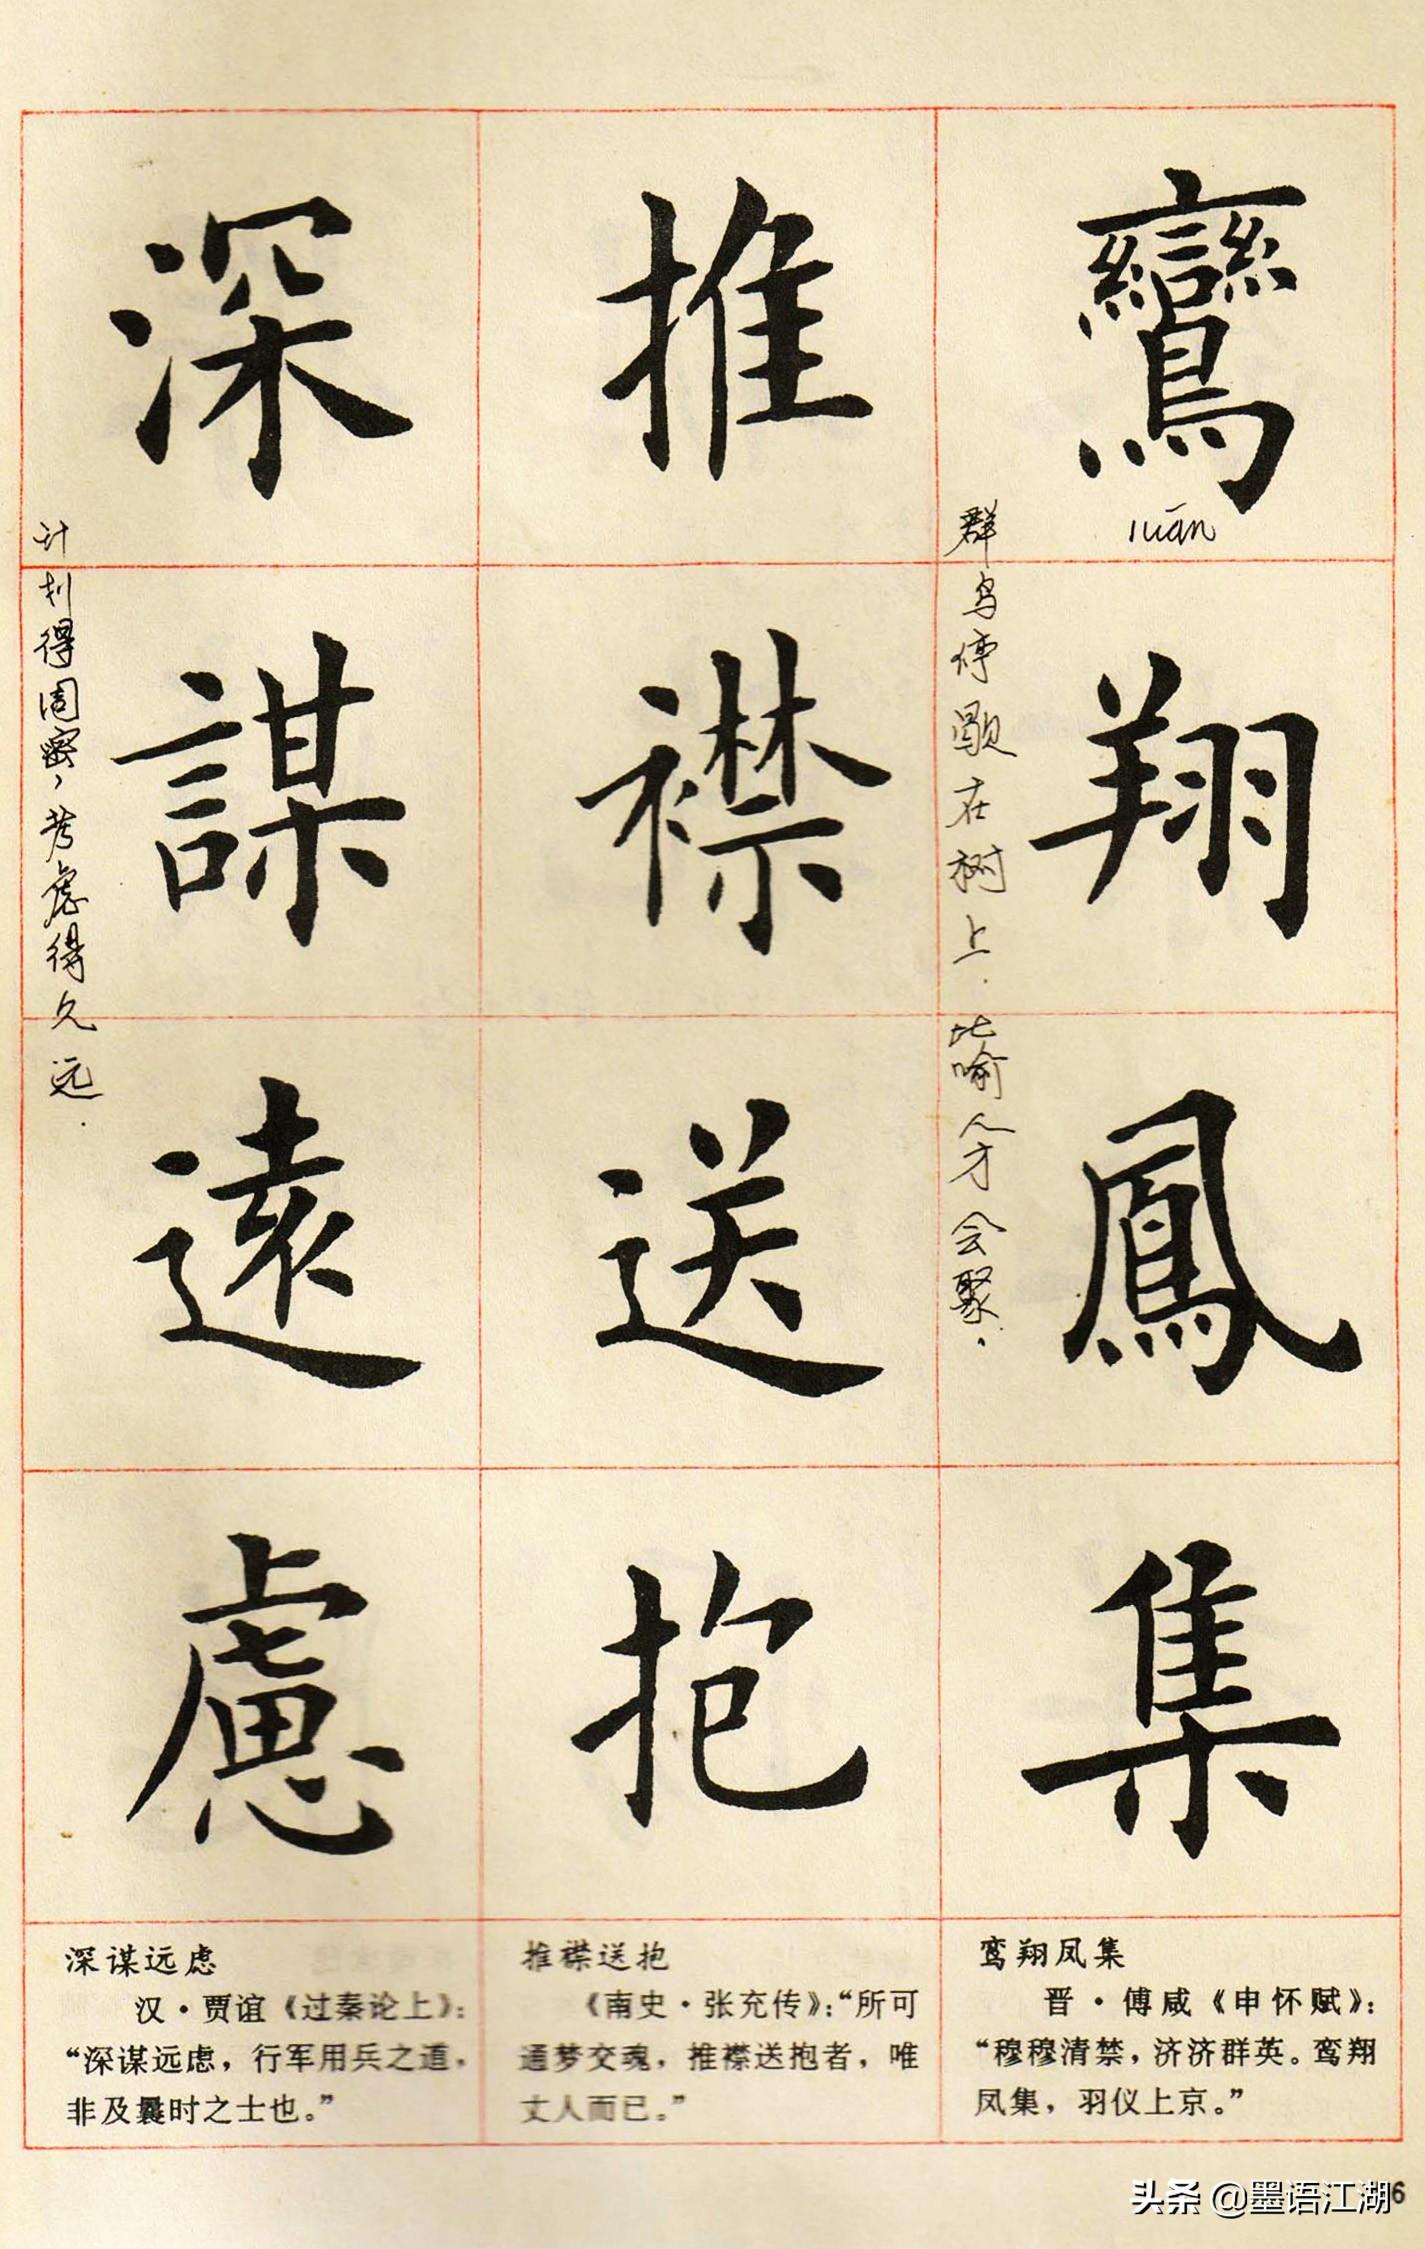 鸞翔鳳集
luán
群鸟停歇在树上.比喻人才会聚.
推襟送抱
深謀遠慮
计划得周密,考虑得久远.
鸾翔凤集
晋·傅咸《申怀赋》:
“穆穆清禁,济济群英。鸾翔
凤集,羽仪上京。”
推襟送抱
《南史·张充传》:“所可
通梦交魂,推襟送抱者,唯
丈人而已。”
深谋远虑
汉·贾谊《过秦论上》:
“深谋远虑,行军用兵之道,
非及曩时之士也。”
头条 @墨语江湖
6